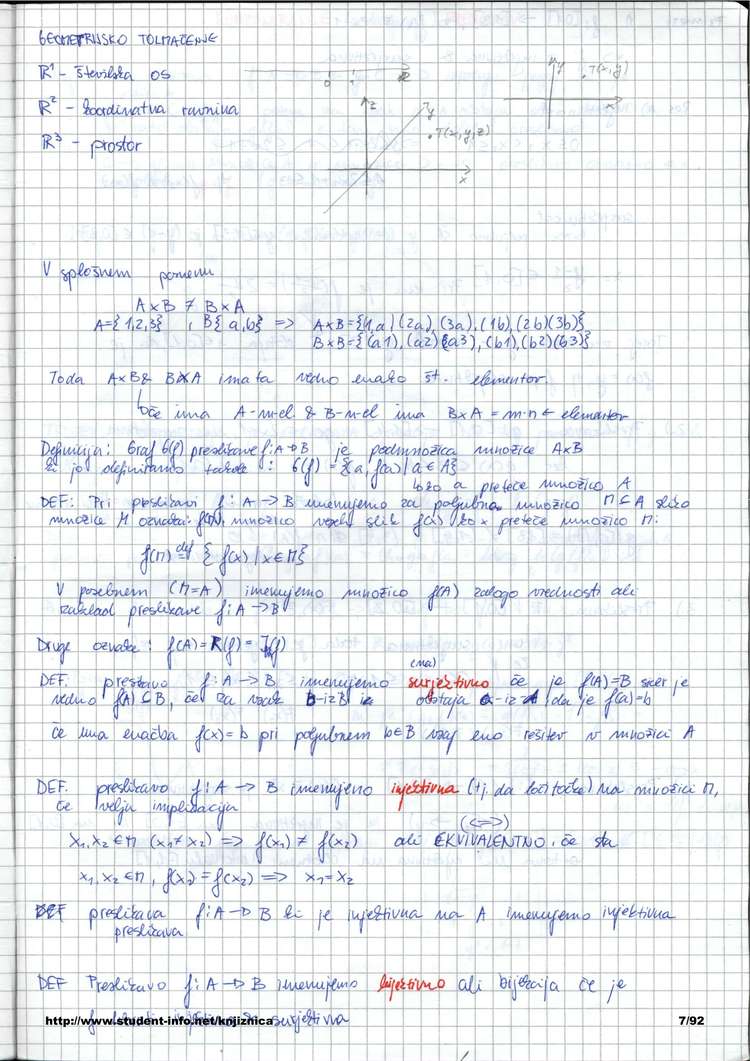 GEOMETRIJSKO TOLMAČENJE
R¹ - številska os
0 1 R
y T(x,y) x
R² - koordinatna ravnina
z y T(x,y,z) x
R³ - prostor
V splošnem pomenu
A×B ≠ B×A
A={1,2,3}, B{a,b} => A×B={(1,a)(2a),(3a),(1b),(2b)(3b)}
B×B={(a1),(a2)(a3),(b1),(b2)(b3)}
Toda A×B & B×A imata vedno enako št. elementov
če ima A-m-el. & B-n-el ima B×A = m·n ← elementov
Definicija: Graf G(f) preslikave f:A→B je podmnožica množice A×B
ki jo definiramo takole: G(f) = {a, f(a) | a ∈ A}
ko a preteče množico A
DEF: Pri preslikavi f: A → B imenujemo za poljubno množico M ⊆ A sliko
množice M oznaka: f(M), množico vseh slik f(x) ko x preteče množico M:
f(M) def= {f(x) | x∈M}
V posebnem (M=A) imenujemo množico f(A) zalogo vrednosti ali
zaklad preslikave f: A→B
Druge oznake: f(A) = R(f) =
(na)
DEF. preslikavo f: A → B imenujemo surjektivno če je f(A)=B saj je
vedno f(A) ⊆ B, če za vsak b-iz B obstaja a-iz A da je f(a)=b
če ima enačba f(x) = b pri poljubnem b∈B vsaj eno rešitev v množici A
DEF. preslikavo f: A → B imenujemo injektivna (tj. da loči točke) na množici M,
če velja implikacija
(<=>)
x₁,x₂ ∈ M (x₁≠x₂) => f(x₁) ≠ f(x₂) ali EKVIVALENTNO, če sta
x₁, x₂ ∈ M, f(x₁) = f(x₂) => x₁=x₂
DEF preslikava f: A → B ki je injektivna na A imenujemo injektivna
preslikava
DEF Preslikavo f: A → B imenujemo bijektivno ali bijekcija če je
surjektivna
http://www.student-info.net/knjiznica
7/92